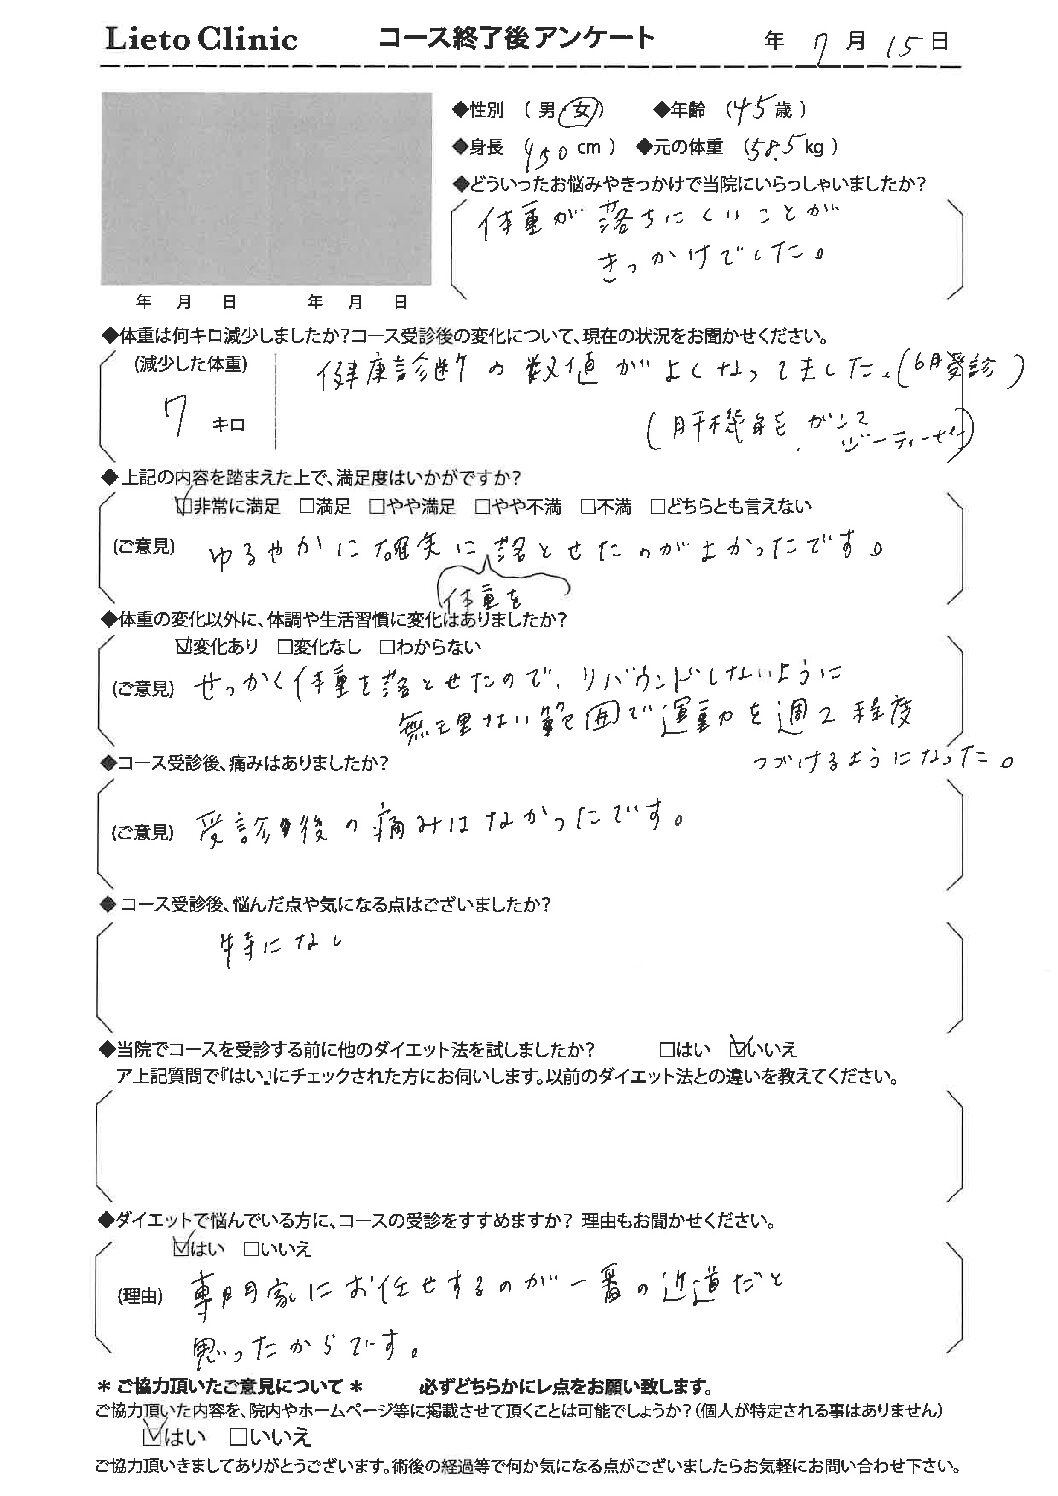 Lieto Clinic コース終了後アンケート 年 7 月 15 日
◆性別 ( 男 女 ) ◆年齢 ( 45 歳 )
◆身長 ( 150 cm ) ◆元の体重 ( 58.5 kg )
◆どういったお悩みやきっかけで当院にいらっしゃいましたか?
体重が落ちにくいことが
きっかけでした。
年 月 日 年 月 日
◆体重は何キロ減少しましたか?コース受診後の変化について、現在の状況をお聞かせください。
(減少した体重) 健康診断の数値がよくなってました。(6月受診)
7 キロ (肝機能、ガンマジーティーピー)
◆上記の内容を踏まえた上で、満足度はいかがですか?
☑非常に満足 □満足 □やや満足 □やや不満 □不満 □どちらとも言えない
(ご意見) ゆるやかに確実に落とせたのがよかったです。
体重を
◆体重の変化以外に、体調や生活習慣に変化はありましたか?
☑変化あり □変化なし □わからない
(ご意見) せっかく体重を落とせたので、リバウンドしないように
無理ない範囲で運動を週2程度
つづけるようになった。
◆コース受診後、痛みはありましたか?
(ご意見) 受診後の痛みはなかったです。
◆コース受診後、悩んだ点や気になる点はございましたか?
特になし
◆当院でコースを受診する前に他のダイエット法を試しましたか? □はい ☑いいえ
ア上記質問で『はい』にチェックされた方にお伺いします。以前のダイエット法との違いを教えてください。
◆ダイエットで悩んでいる方に、コースの受診をすすめますか? 理由もお聞かせください。
☑はい □いいえ
(理由) 専門家にお任せするのが一番の近道だと
思ったからです。
* ご協力頂いたご意見について * 必ずどちらかにレ点をお願い致します。
ご協力頂いた内容を、院内やホームページ等に掲載させて頂くことは可能でしょうか?(個人が特定される事はありません)
☑はい □いいえ
ご協力頂きましてありがとうございます。術後の経過等で何か気になる点がございましたらお気軽にお問い合わせ下さい。